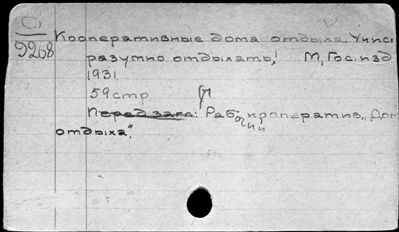 С.
9268
Кооперативные дома отдыха. Учись
разумно отдыхать! М, Гос. изд
1931
59 стр
Перед загл: Рабочий кооператив „Дом
отдыха".